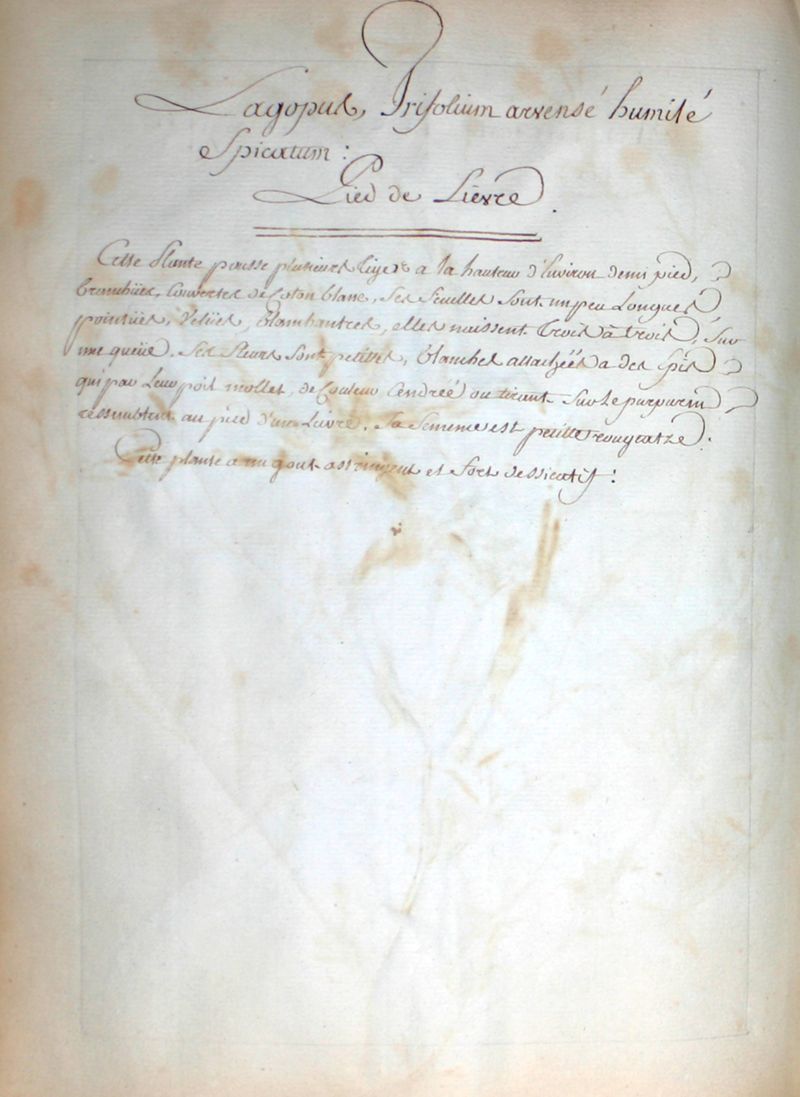 Lagopus, Trifolium arvensé humilé
Spicatum :
Pied de Lièvre .
Cette Plante pousse plusieurs tiges a la hauteur d'Environ demi pied,
branchües, Couvertes de Coton blanc, Ses feuilles sont un peu Longues,
pointües, Velües, blanchantres, elles naissent trois à trois, Sur
une queüe. Ses fleurs sont petites, blanches attachéés a des Epis
qui par Leur poil mollet, de Couleur Cendreé ou tirant Sur Le purpurin
ressemblent au pied d'un Lievre. Sa Semence est petitte rougeatre.
Cette plante a un gout astringent et fort dessicatif :